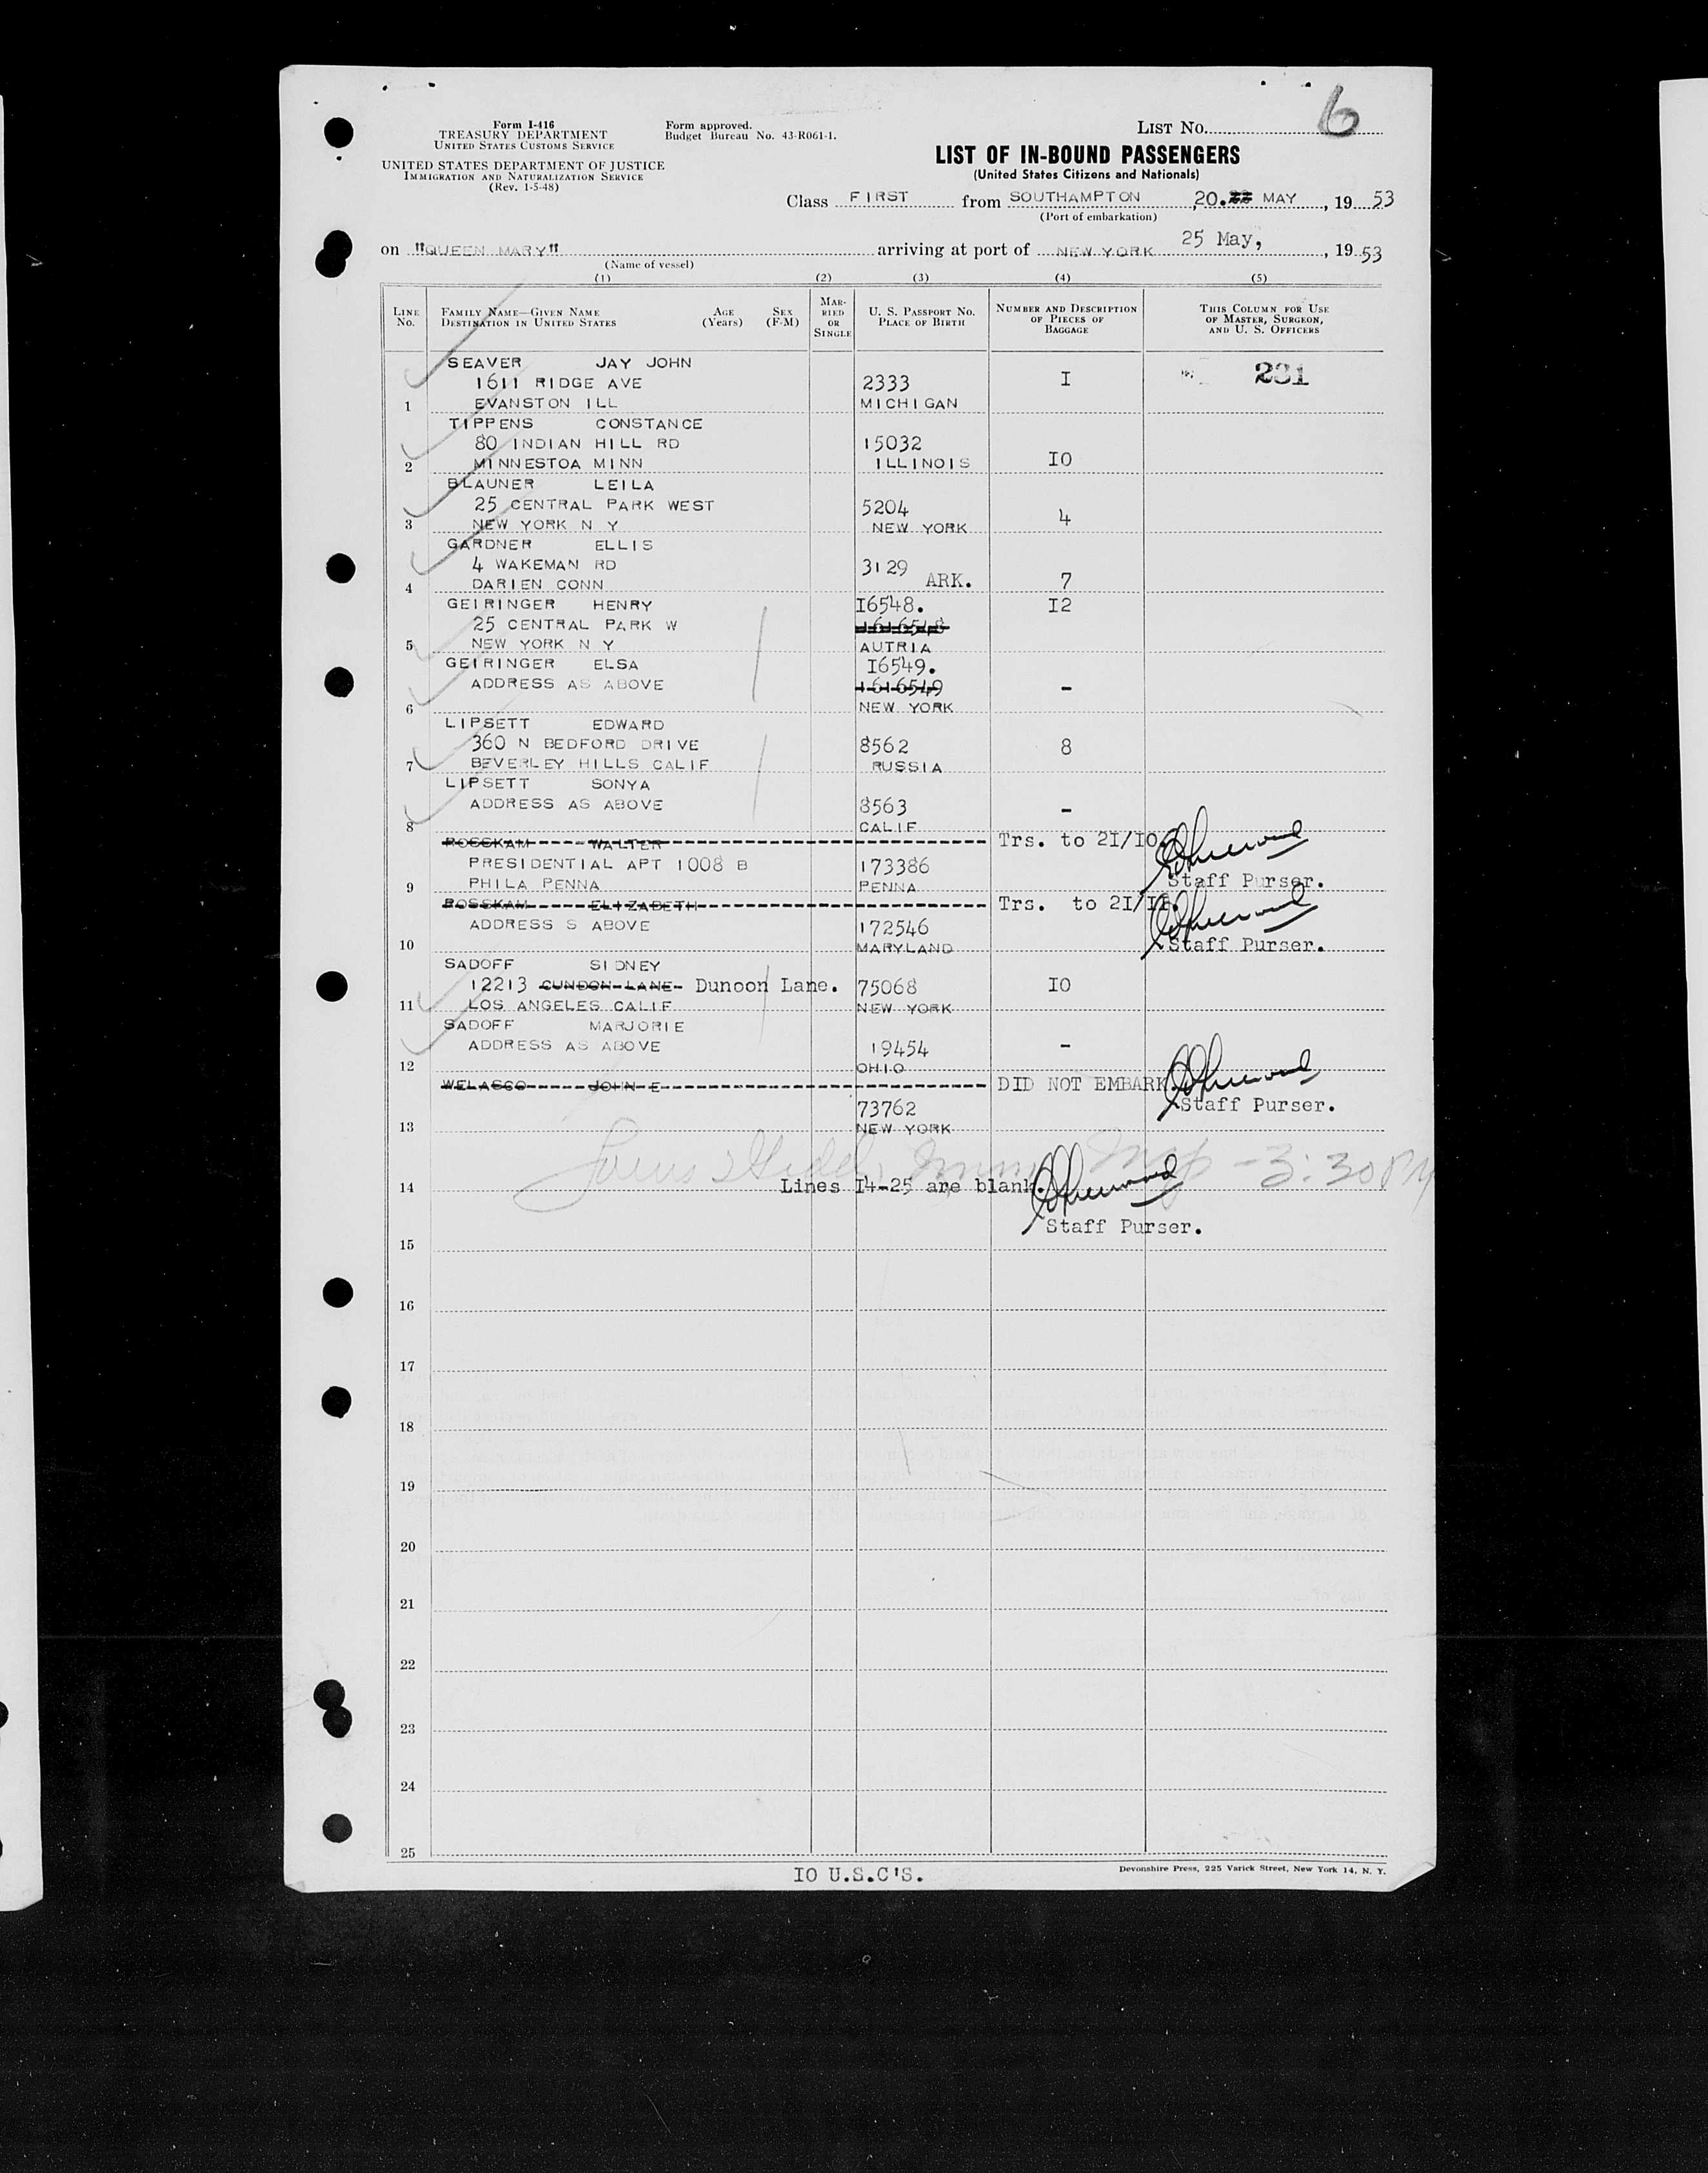 Form I-416
TREASURY DEPARTMENT
UNITED STATES CUSTOMS SERVICE
UNITED STATES DEPARTMENT OF JUSTICE
IMMIGRATION AND NATURALIZATION SERVICE
(Rev. 1-5-48)
Form approved.
Budget Bureau No. 43-R061-1.
LIST No. 6
LIST OF IN-BOUND PASSENGERS
(United States Citizens and Nationals)
Class FIRST from SOUTHAMPTON, 20. 22 MAY, 19 53
(Port of embarkation)
on "QUEEN MARY" arriving at port of NEW YORK 25 May, , 19 53
(Name of vessel)
(1) (2) (3) (4) (5)
LINE No. FAMILY NAME—GIVEN NAME DESTINATION IN UNITED STATES AGE (Years) SEX (F-M) MARRIED OR SINGLE U. S. PASSPORT NO. PLACE OF BIRTH NUMBER AND DESCRIPTION OF PIECES OF BAGGAGE THIS COLUMN FOR USE OF MASTER, SURGEON, AND U. S. OFFICERS
SEAVER JAY JOHN
1611 RIDGE AVE 2333 I 231
1 EVANSTON ILL MICHIGAN
TIPPENS CONSTANCE
80 INDIAN HILL RD 15032
2 MINNESTOA MINN ILLINOIS IO
BLAUNER LEILA
25 CENTRAL PARK WEST 5204
3 NEW YORK N Y NEW YORK 4
GARDNER ELLIS
4 WAKEMAN RD 3129
4 DARIEN CONN ARK. 7
GEIRINGER HENRY I6548. I2
25 CENTRAL PARK W 1616548
5 NEW YORK N Y AUTRIA
GEIRINGER ELSA I6549.
ADDRESS AS ABOVE 1616549 -
6 NEW YORK
LIPSETT EDWARD
360 N BEDFORD DRIVE 8562 8
7 BEVERLEY HILLS CALIF RUSSIA
LIPSETT SONYA
ADDRESS AS ABOVE 8563 -
8 CALIF
ROSSKAM WALTER Trs. to 2I/IO.
PRESIDENTIAL APT 1008 B 173386
9 PHILA PENNA PENNA Staff Purser.
ROSSKAM ELIZABETH Trs. to 2I/II.
ADDRESS S ABOVE 172546
10 MARYLAND Staff Purser.
SADOFF SIDNEY
12213 CUNDON LANE Dunoon Lane. 75068 IO
11 LOS ANGELES CALIF NEW YORK
SADOFF MARJORIE
ADDRESS AS ABOVE 19454 -
12 OHIO
WELASCO JOHN E DID NOT EMBARK.
73762 Staff Purser.
13 NEW YORK
3:30 PM
14 Lines I4-25 are blank.
Staff Purser.
15
16
17
18
19
20
21
22
23
24
25
IO U.S.C'S.
Devonshire Press, 225 Varick Street, New York 14, N. Y.